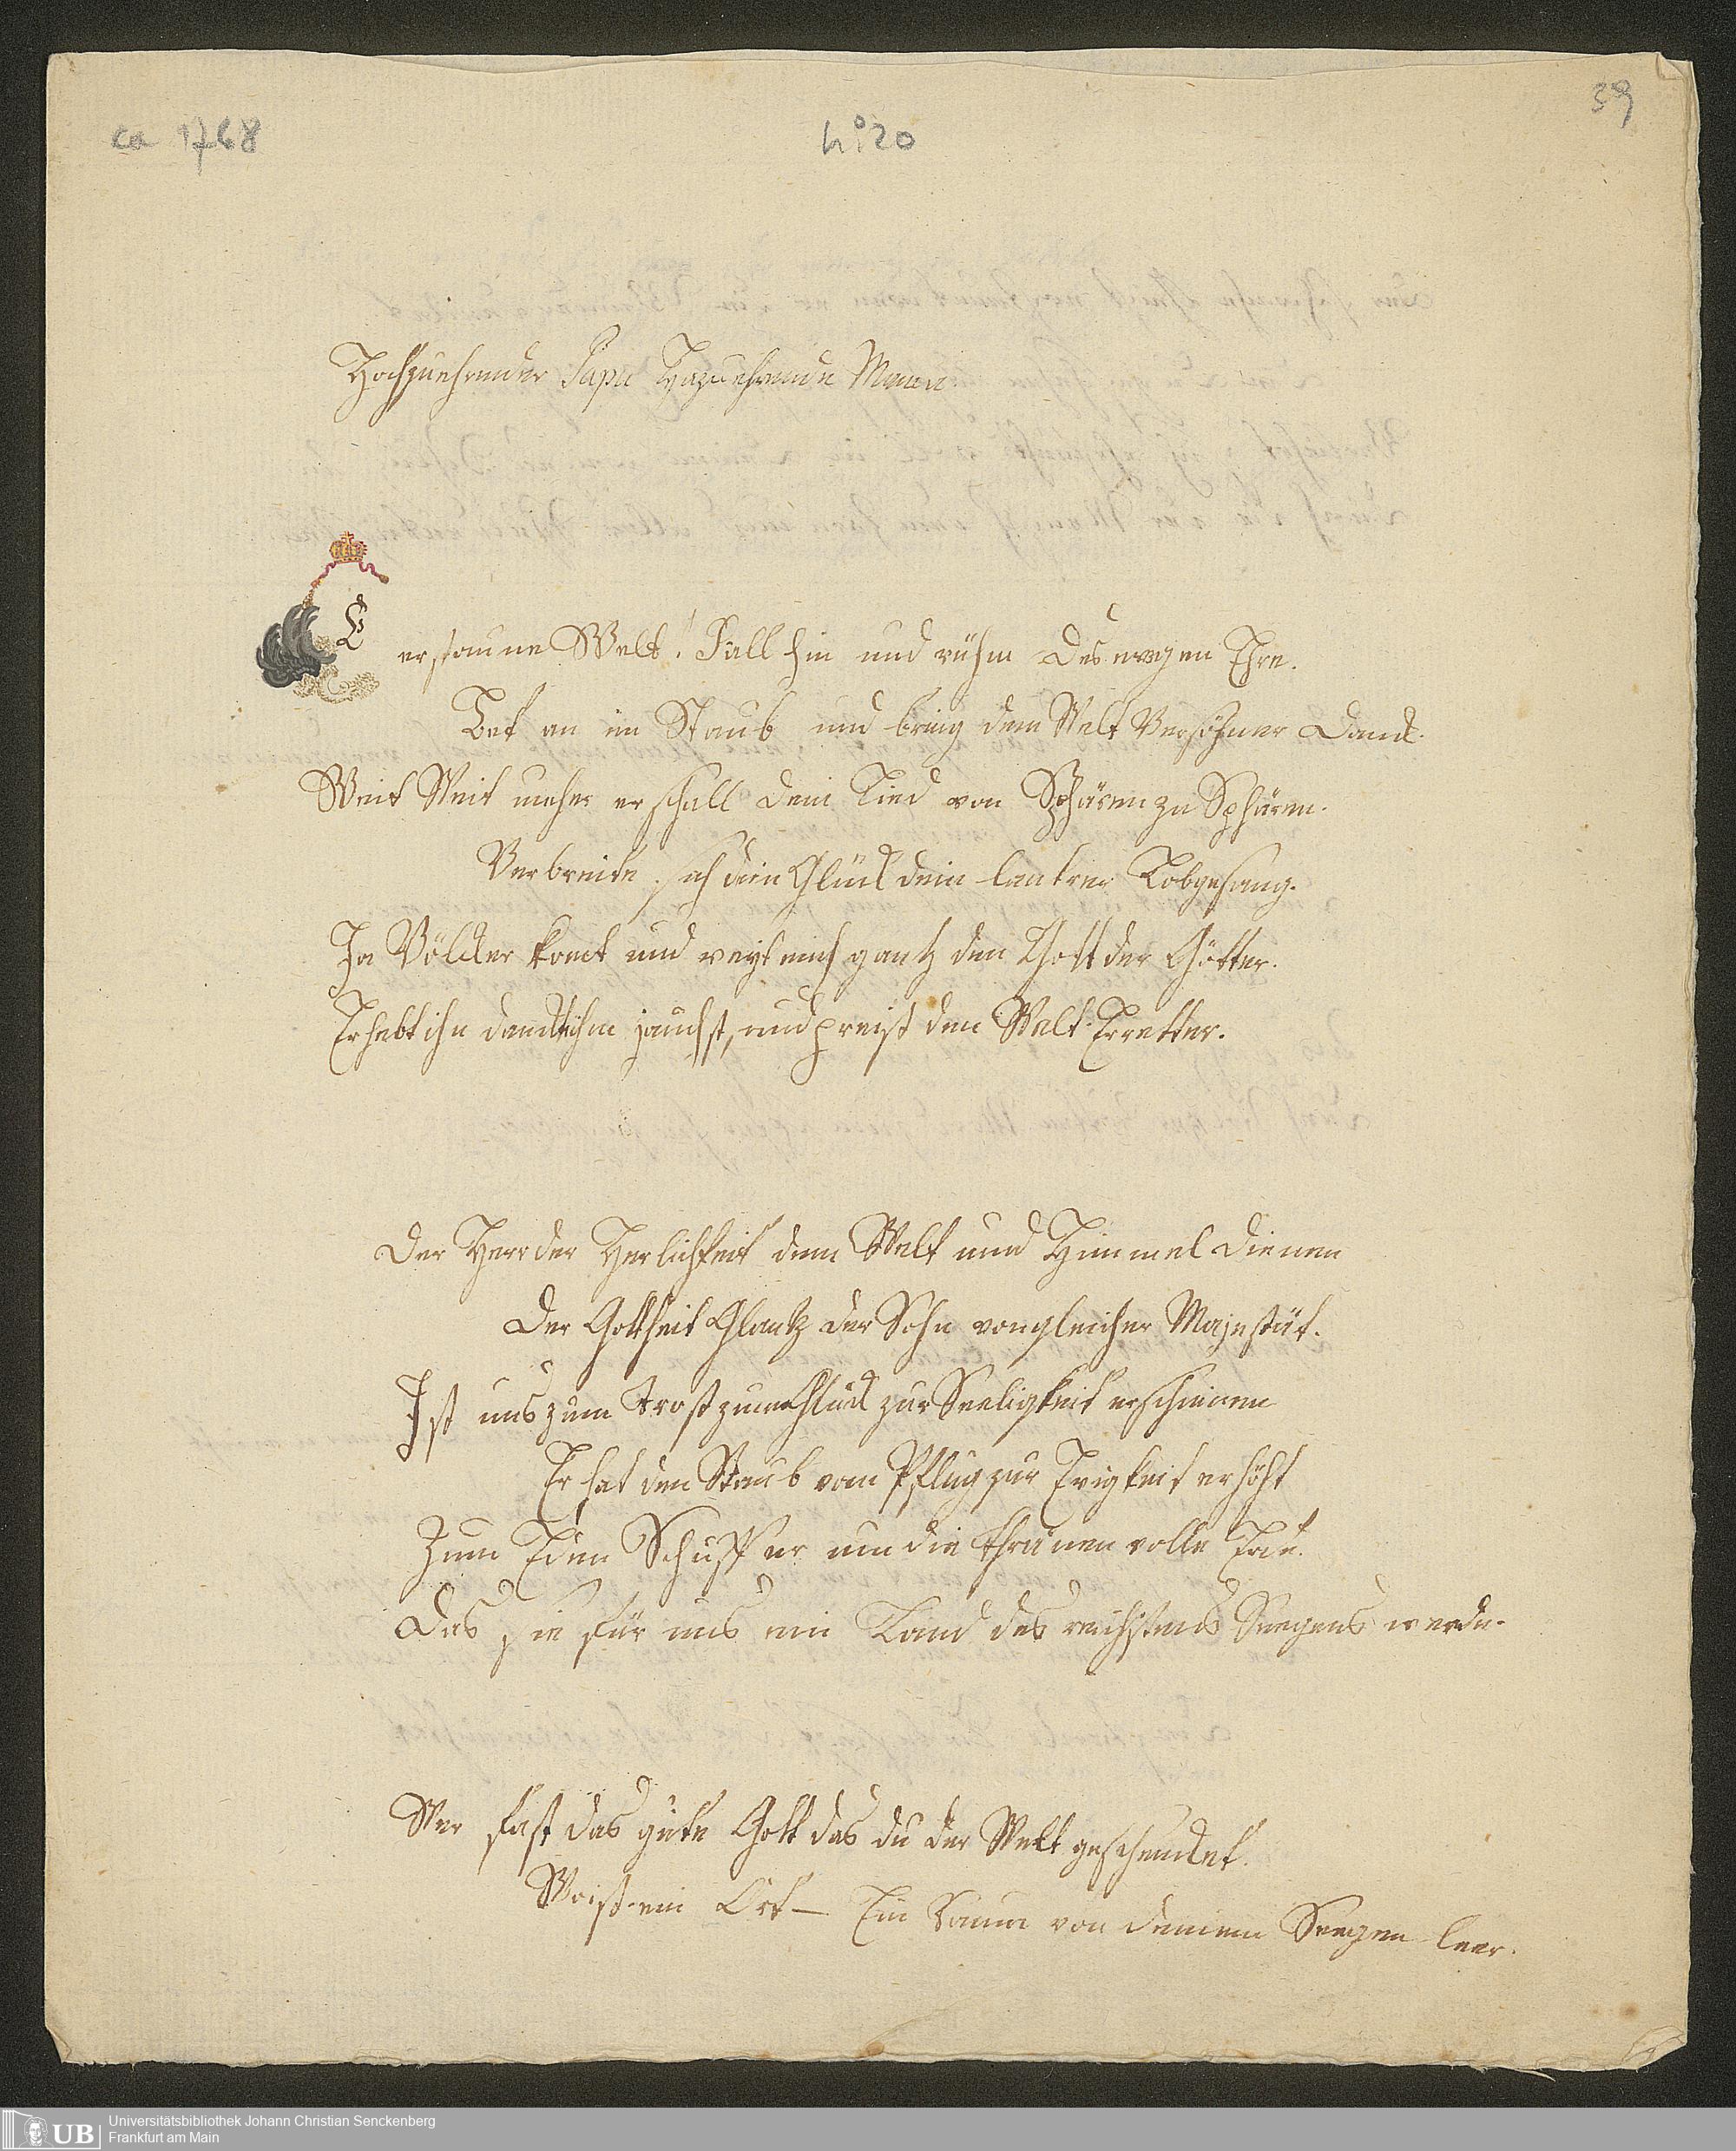 ca 1768
No 20
39
Hochzuehrender Papa Hozuehrende Mama
E erstaune Welt! Fall hin und rühm des ewgen Ehre.
Bet an im Staub und bring dem Welt Versöhner Danck.
Weit Weit meher erschall dein Lied von Sphären zu Sphären.
Verbreite sich dein Glück dein lautrer Lobgesang.
Ja Völcker komt und weyht euch gantz dem Gott der Götter.
Erhebt ihn danckt ihm jauchst, und preist den Welt-Erretter.
Der Herr der Herlichkeit dem Welt und Himmel dienen
Der Gottheit Glantz der Sohn von gleicher Majestät.
Ist uns zum Trost zum Glück zur Seeligkeit erschienen
Er hat den Staub vom Pflug zur Ewigkeit erhöht
Zum Eden Schuff er um die thränen volle Erde.
Das sie für uns ein Land des reichsten Seegens werde.
Wer fast das gute Gott das du der Welt geschencket.
Wo ist ein Ort — Ein Raum von deinem Seegen leer.
UB Universitätsbibliothek Johann Christian Senckenberg
Frankfurt am Main